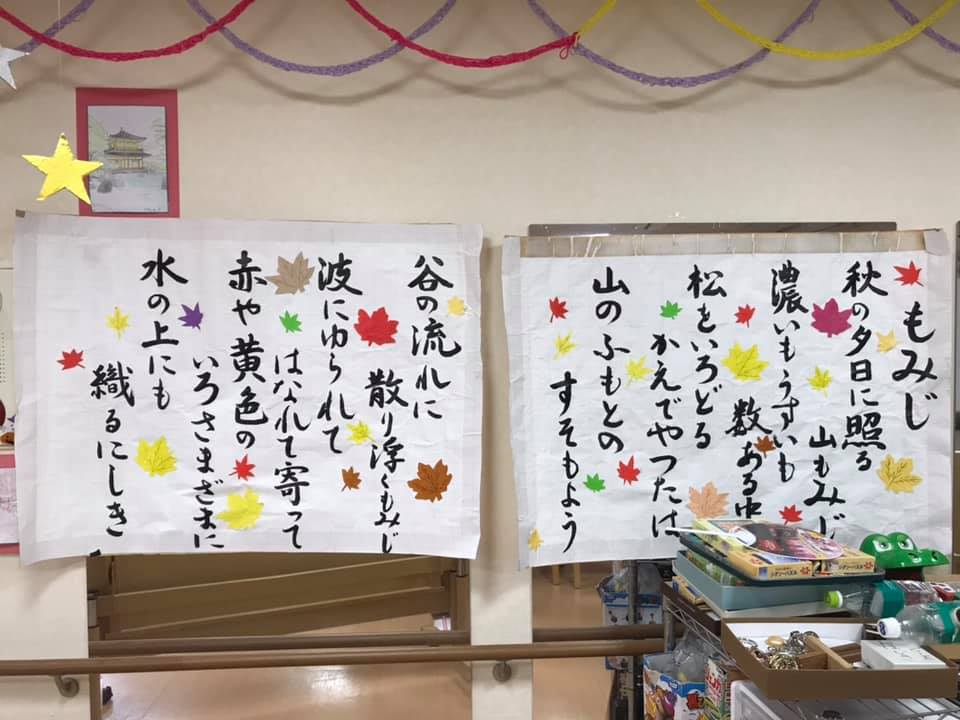 もみじ
秋の夕日に照る
山もみじ
濃いもうすいも
数ある中
松をいろどる
かえでやつたは
山のふもとの
すそもよう
谷の流れに
散り浮くもみじ
波にゆられて
はなれて寄って
赤や黄色の
いろさまざまに
水の上にも
織るにしき